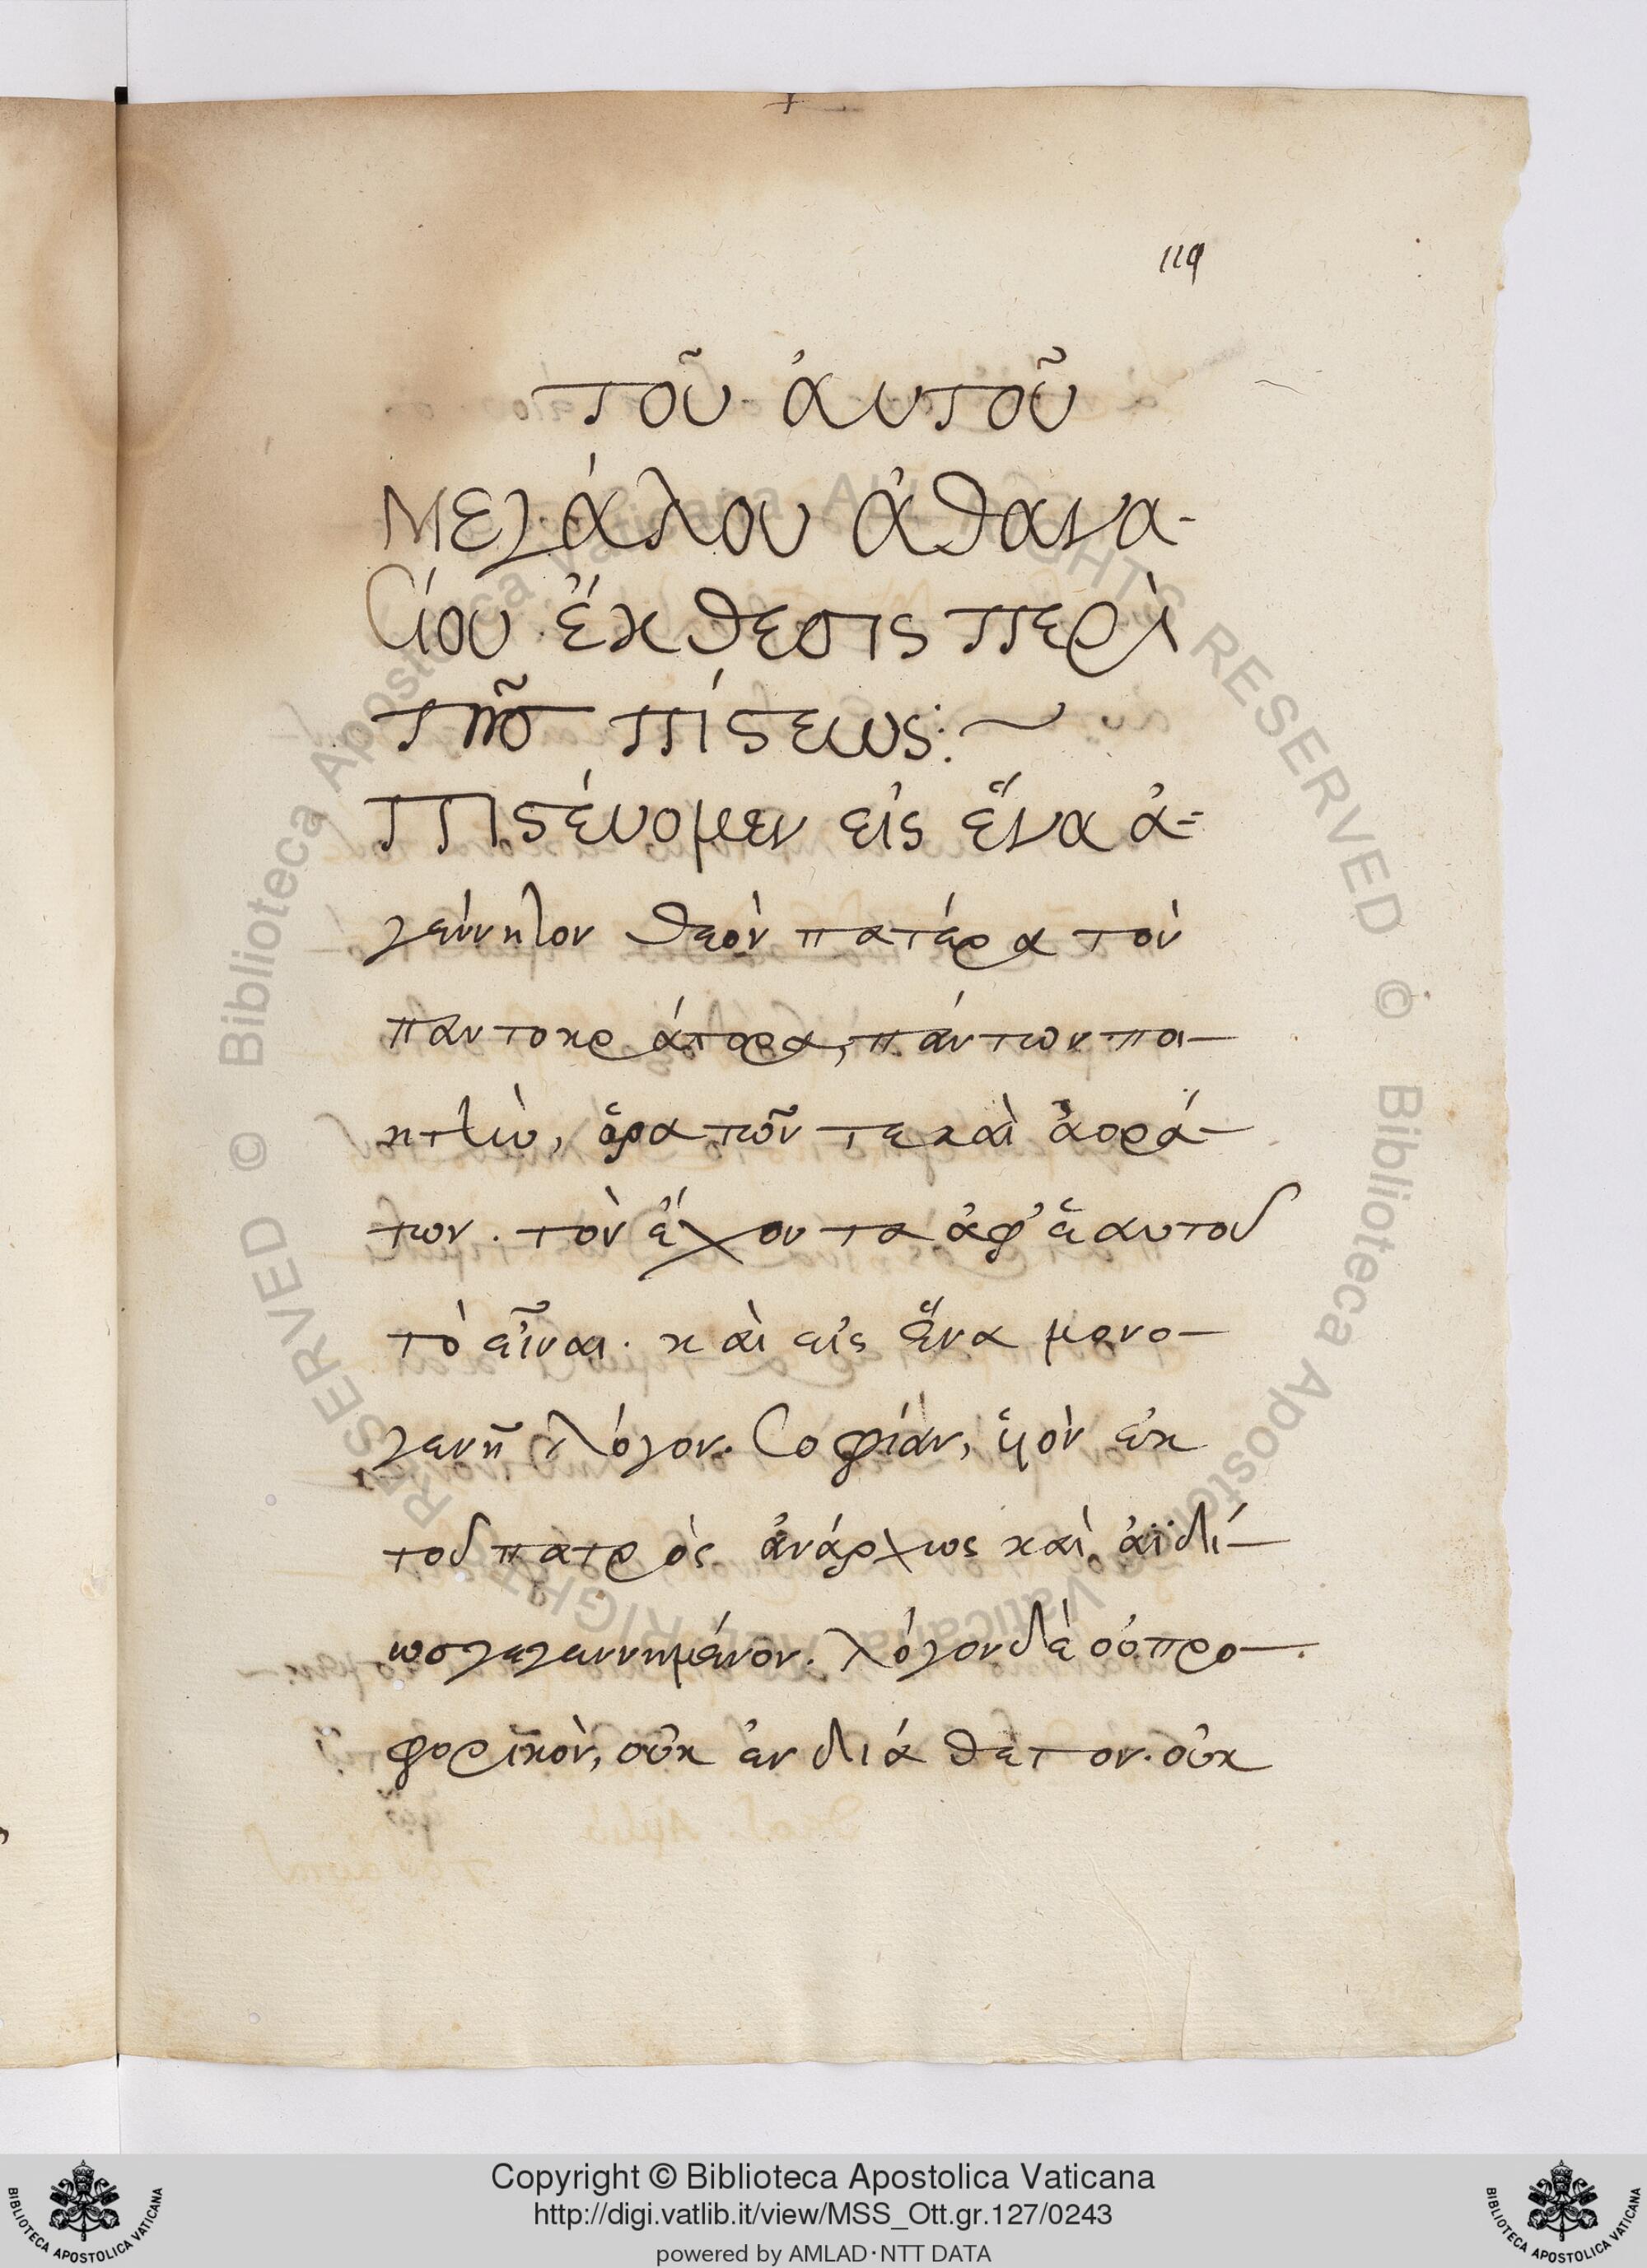 119
τοῦ ἀυτοῦ
Μεγάλου ἀθανα-
σίου ἔκθεσις περὶ
τῆς πίστεως:~
Πιστέυομεν εἰς ἕνα ἀ-
γέννητον θεὸν πατέρα τὸν
παντοκράτορα, πάντων ποι-
ητὴν, ὁρατῶν τε καὶ ἀορά-
των. τὸν ἔχοντα ἀφ' ἑαυτοῦ
τὸ εἶναι. καὶ εἰς ἕνα μονο-
γενῆ λόγον. σοφίαν, ὑιὸν ἐκ
τοῦ πατρὸς ἀνάρχως καὶ ἀϊδί-
ως γεγεννημένον. λόγον δὲ οὐ προ-
φορικὸν, οὐκ ἐνδιάθετον. οὐκ
Copyright © Biblioteca Apostolica Vaticana
http://digi.vatlib.it/view/MSS_Ott.gr.127/0243
powered by AMLAD·NTT DATA
BIBLIOTECA APOSTOLICA VATICANA
BIBLIOTECA APOSTOLICA VATICANA
© Biblioteca Apostolica Vaticana ALL RIGHTS RESERVED
© Biblioteca Apostolica Vaticana ALL RIGHTS RESERVED